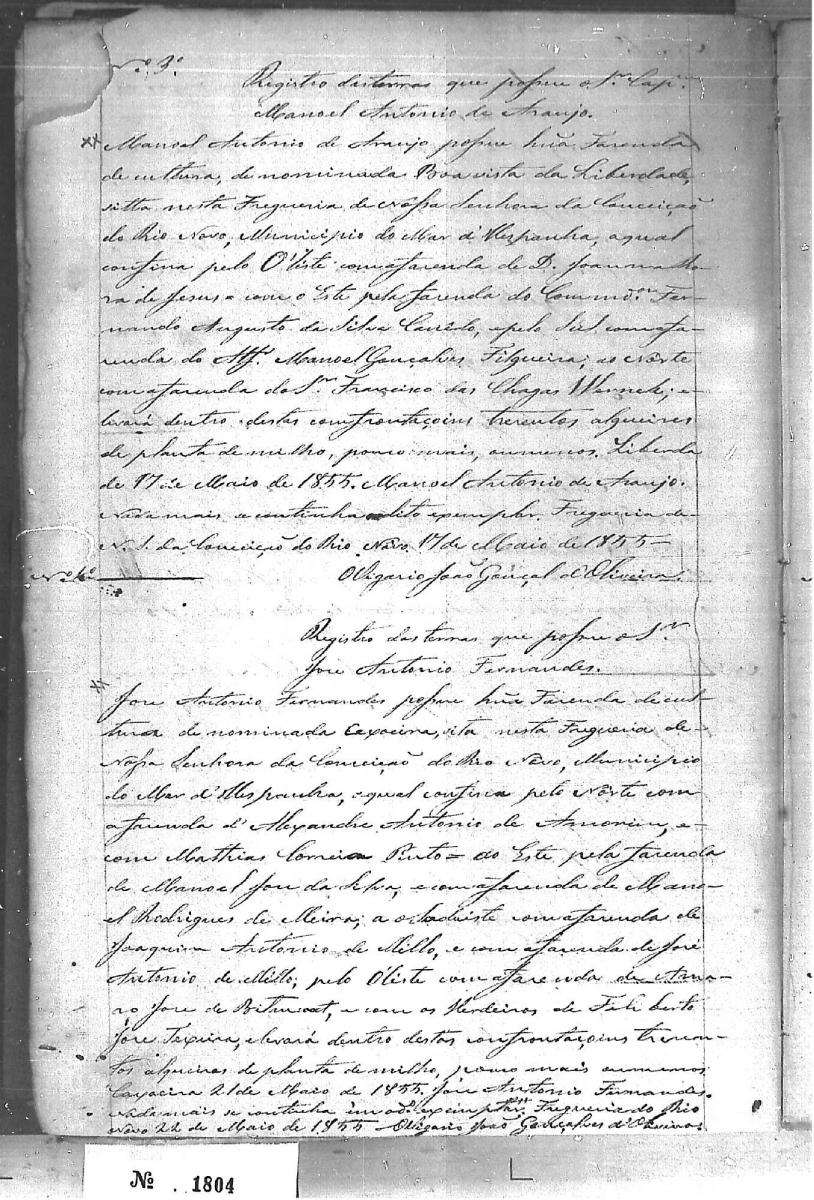 Nº. 3º.
Registro das terras que possue o Snr. Capm.
Manoel Antonio de Araujo.
Manoel Antonio de Araujo possue huã Fazenda
de cultura, de nominada Boa vista da Liberdade,
sitta nesta Freguezia de Nossa Senhora da Conceição
do Rio Novo, Municipio do Mar d'Hespanha, a qual
confina pelo O'éste com a fazenda de D. Joanna Mo-
ra de Jesus = com o Este pela fazenda do Commdor. Fer-
nando Augusto da Silva Canêdo, e pelo Sul com a fa-
zenda do Alfs. Manoel Gonçalves Filgueira; ao Nórte
com a fazenda do Snr. Francisco das Chagas Werneck; e
levará dentro destas comfrontaçoins trezentos alqueires
de planta de milho, pouco mais, ou menos. Liberda
de 17 de Maio de 1855. Manoel Antonio de Araujo.
Nada mais se continha dito exemplar. Freguezia de
N. S. da Conceição do Rio Nôvo 17 de Maio de 1855 =
Oligario João Gonçal d'Oliveira.
Nº. 4º.
Registro das terras que possue o Snr.
Jose Antonio Fernandes.
Jose Antonio Fernandes possue huã Fazenda de cul-
tura de nominada Caxoeira, sita nesta Freguezia de
Nossa Senhora da Conceição do Rio Novo, Municipio
do Mar d'Hespanha, a qual confina pelo Nórte com
a fazenda d'Alexandre Antonio de Amorim, e
com Mathias Correia Pinto = do Este pela fazenda
de Manoel Jose da Silva, e com a fazenda de Mano-
el Rodrigues de Meira; a o Suduéste com a fazenda de
Joaquim Antonio de Mello, e com a fazenda de José
Antonio de Mello; pelo O'éste com a fazenda de Ama-
ro Jose de Bitencort, e com os Herdeiros de Feliberto
Jose Texeira, e levará dentro destas confrontaçoins trezen-
tos alqueires de planta de milho, pouco mais ou menos
Caxoeira 21 de Maio de 1855. Jose Antonio Fernandes.
Nada mais se continha em o dº. exemplar. Freguezia do Rio
Novo 22 de Maio de 1855 Oligario João Gonçalves d'Oliveira.
Nº . 1804